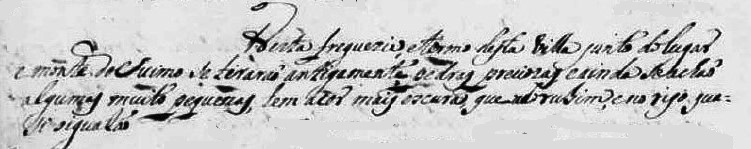 Nesta freguezia, e termo desta Villa junto do lugar
e monte do Suimo se tiraráo antigamente pedras preciozas e ainda se achão
algumas muito pequenas, tem a cor mais escura, que o rubim, e no rijo, qua-
si o igualão